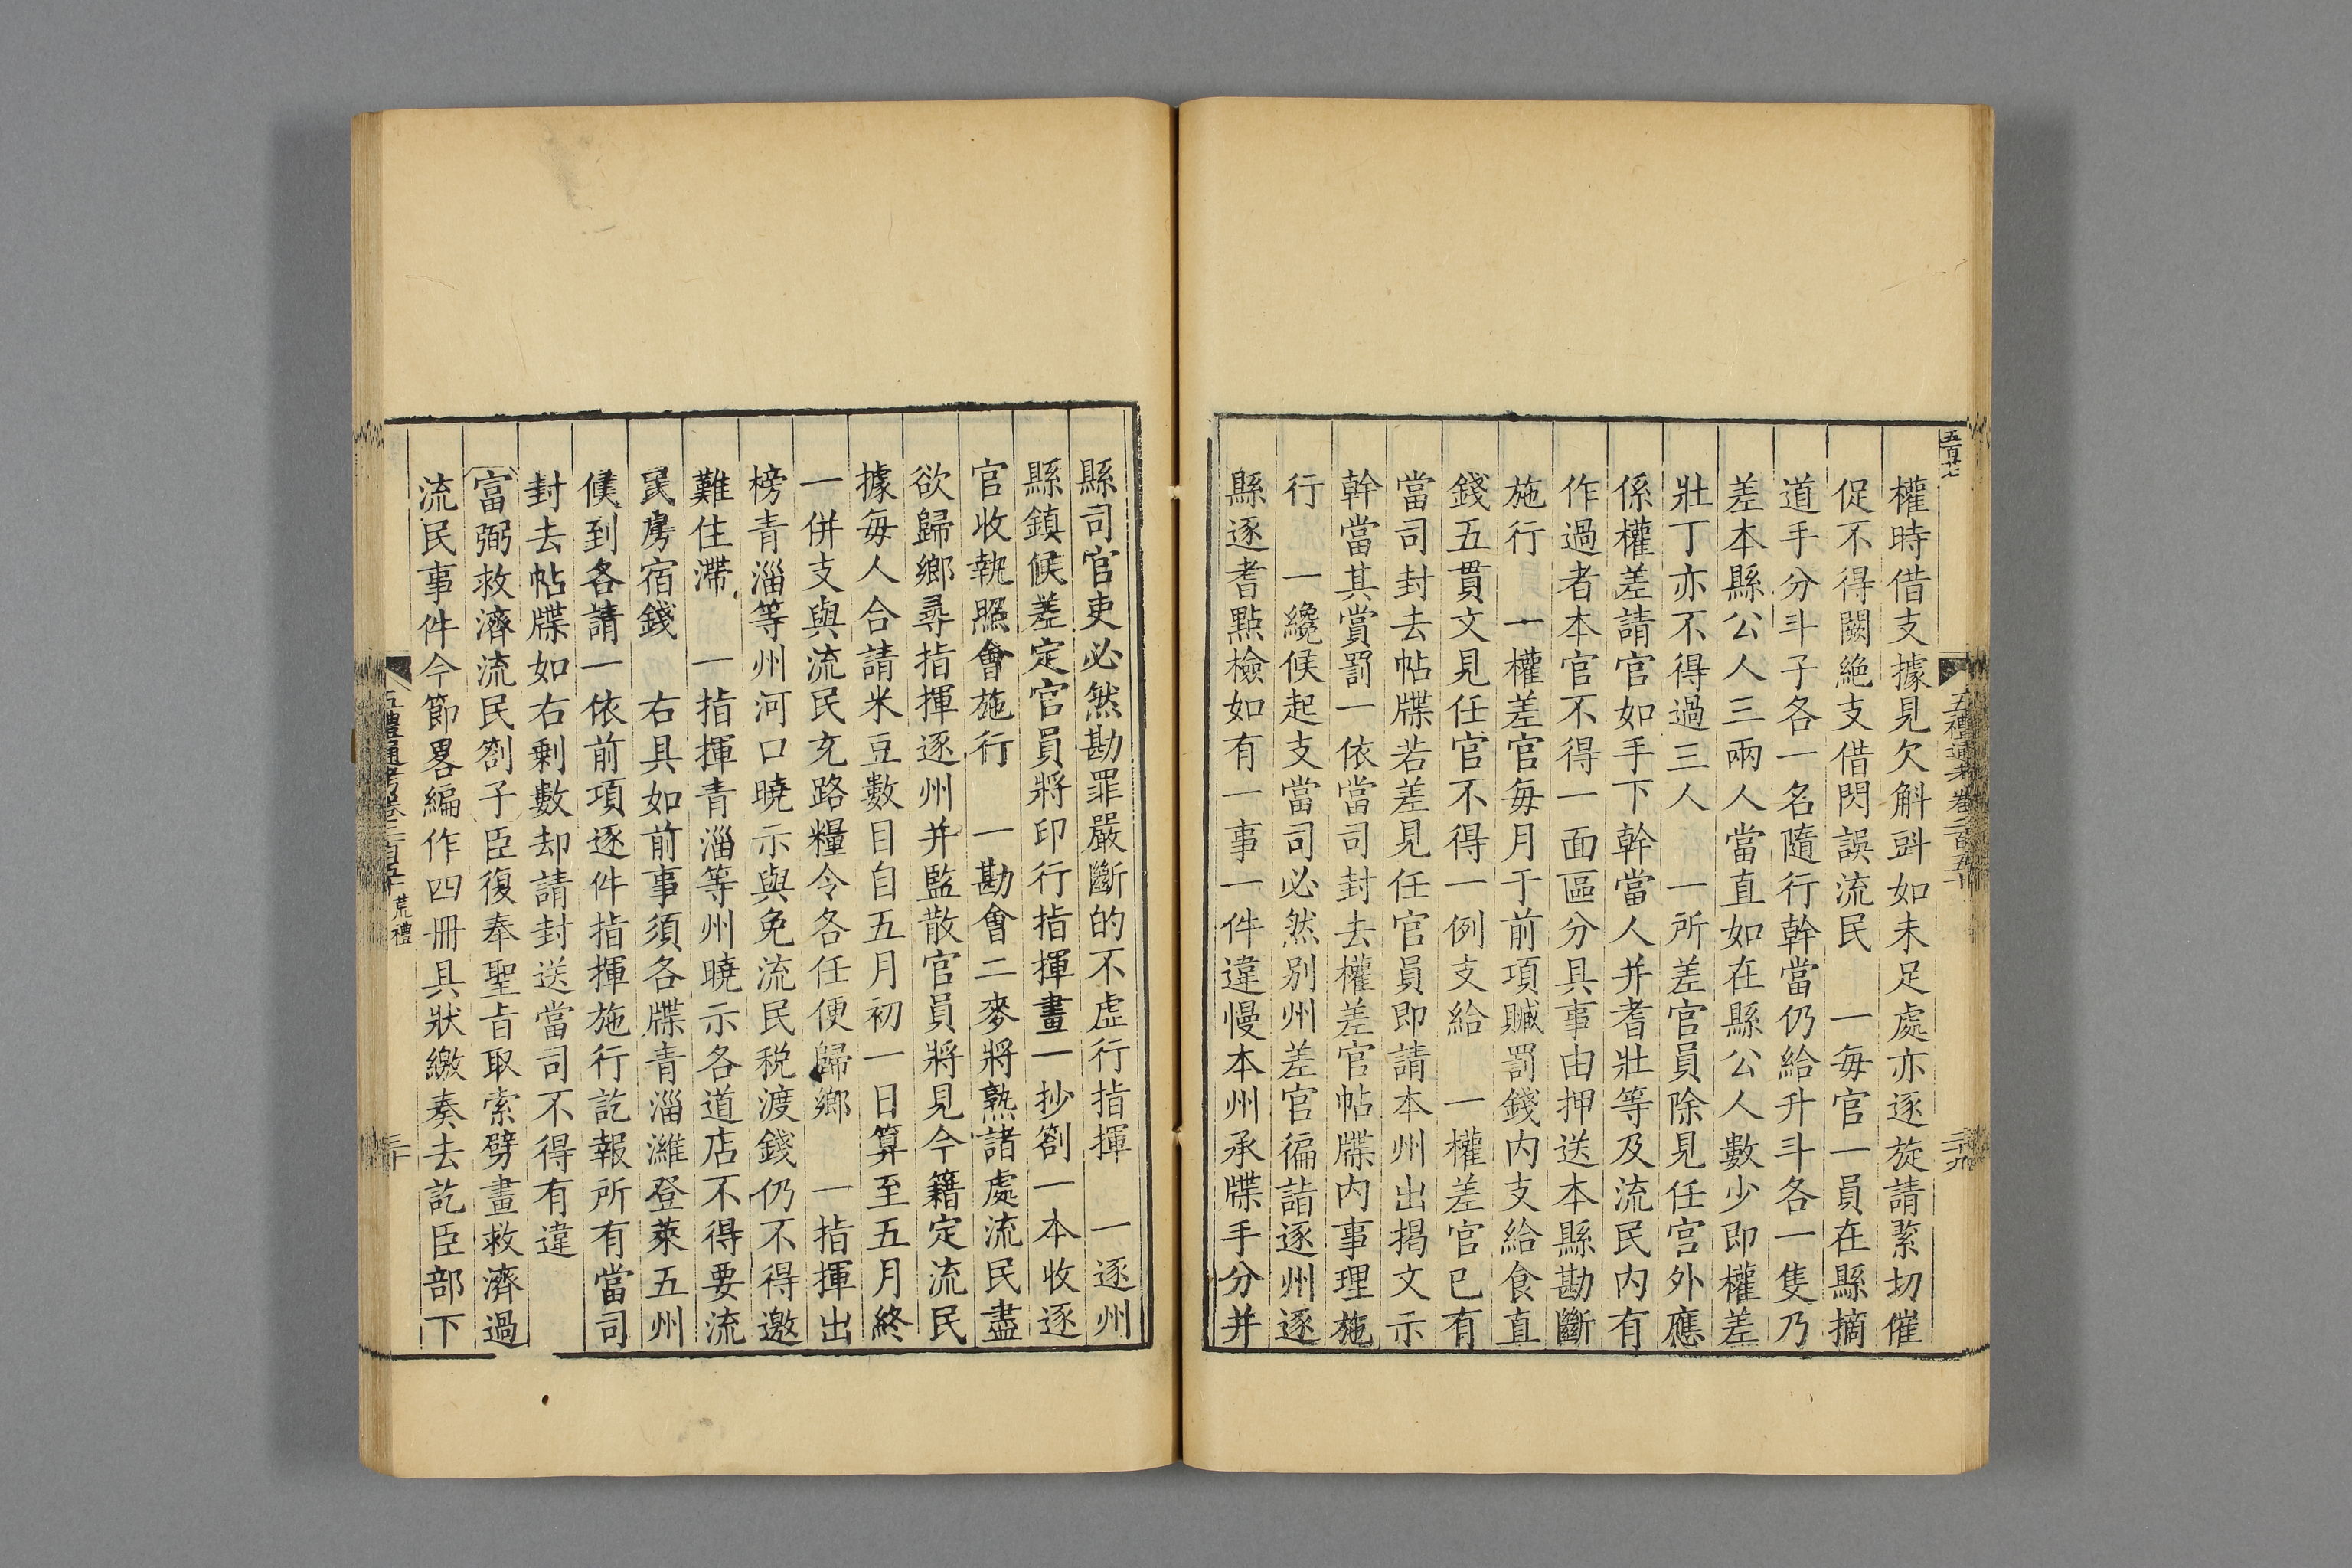 五百廿七
權時借支據見欠斛㪷如未足處亦逐旋請緊切催
促不得闕絶支借悶誤流民　一每官一員在縣摘
道手分斗子各一名隨行幹當仍給升斗各一隻乃
差本縣公人三兩人當直如在縣公人數少即權差
壯丁亦不得過三人　一所差官員除見任官外應
係權差請官如手下幹當人并耆壯等及流民内有
作過者本官不得一面區分具事由押送本縣勘斷
施行　一權差官每月于前項贓罰錢内支給食直
錢五貫文見任官不得一例支給　一權差官已有
當司封去帖牒若差見任官員即請本州出揭文示
幹當其賞罰一依當司封去權差官帖牒内事理施
行　一纔候起支當司必然别州差官徧詣逐州逐
縣逐耆點檢如有一事一件違慢本州承牒手分并
五禮通考卷二百五十
二十九
縣司官吏必然勘罪嚴斷的不虚行指揮　一逐州
縣鎮候差定官員將印行指揮畫一抄劄一本收逐
官收執照會施行　一勘會二麥將熟諸處流民盡
欲歸鄉尋指揮逐州并監散官員將見今籍定流民
據每人合請米豆數目自五月初一日算至五月終
一併支與流民充路糧令各任便歸鄉　一指揮出
榜青淄等州河口曉示與免流民税渡錢仍不得邀
難住滯　一指揮青淄等州曉示各道店不得要流
民房宿錢　右具如前事須各牒青淄濰登萊五州
候到各請一依前項逐件指揮施行訖報所有當司
封去帖牒如右剩數却請封送當司不得有違
富弼救濟流民劄子臣復奉聖旨取索劈畫救濟過
流民事件今節畧編作四冊具狀繳奏去訖臣部下
五禮通考卷二百五十　荒禮
三十